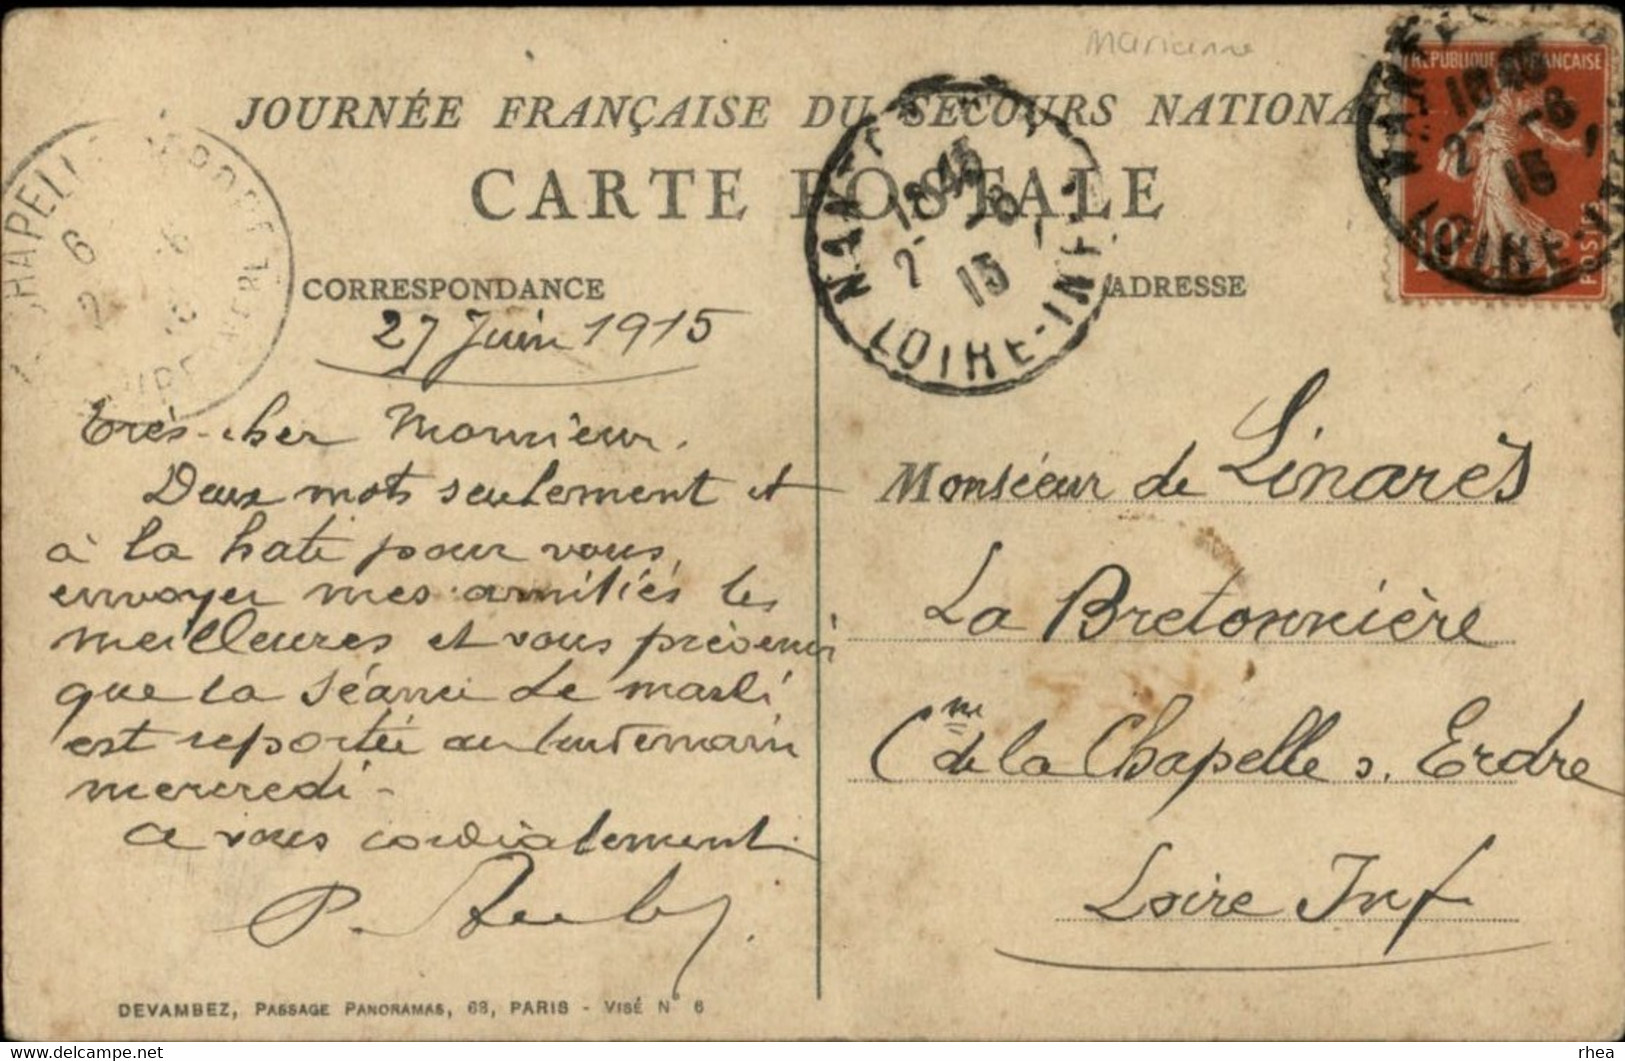 Marianne
JOURNÉE FRANÇAISE DU SECOURS NATIONAL
CARTE POSTALE
CORRESPONDANCE
ADRESSE
RÉPUBLIQUE FRANÇAISE
10
POSTES
NANTES
18 45
2 -6
15
LOIRE-INF
NANTES
18 45
2 -6
15
LOIRE-INF
27 Juin 1915
Très-cher Monsieur.
Deux mots seulement et
à la hate pour vous
envoyer mes amitiés les
meilleures et vous prévenir
que la séance de mardi
est reportée au lendemain
mercredi -
a vous cordialement.
P.
Monsieur de Linarès
La Bretonnière
Cne de la Chapelle s. Erdre
Loire Inf
DEVAMBEZ, PASSAGE PANORAMAS, 63, PARIS - VISÉ N° 6
rhea